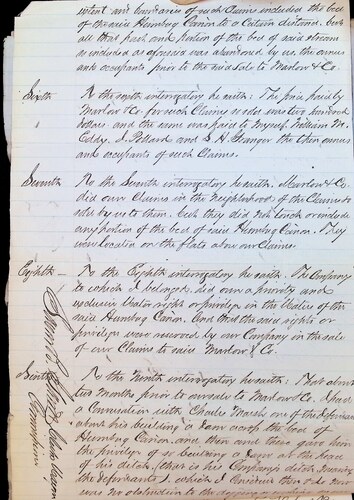 intent and boundaries of such Claims included the bed
of the said Humbug Cañon to a Certain distance, but
all that part and portion of the bed of said stream
so included as aforesaid was abandoned by us the owners
and occupants prior to the said sale to Marlow & Co.
Sixth
To the sixth interrogatory he saith: The price paid by
Marlow & Co for such Claims so sold was two hundred
dollars and the same was paid to myself, William M.
Eddy, J. Pollard and S. H. Granger the then owners
and occupants of such Claims.
Seventh
To the Seventh interrogatory he saith. Marlow & Co.
did own Claims in the Neighborhood of the Claims so
sold by us to them. but they did not touch or include
any portion of the bed of said Humbug Cañon. They
were located on the flats above our Claims
Eighth
To the Eighth interrogatory he saith. The Company
to which I belonged did own a priority and
exclusive Water right or privilege in the Waters of the
said Humbug Cañon. And that the said rights or
privilege were reserved by our Company in the sale
of our Claims to said Marlow & Co.
Ninth
To the Ninth interrogatory he saith: That about
two Months prior to our sale to Marlow & Co. I had
a Conversation with Charles Marsh one of the Defendants
about his building a dam across the bed of
Humbug Cañon. and then and there gave him
the privilege of so building a dam at the head
of his ditch, (that is his Company's ditch, meaning
the Defendants), which I consider then & so now
was no obstruction to the
Commissioner